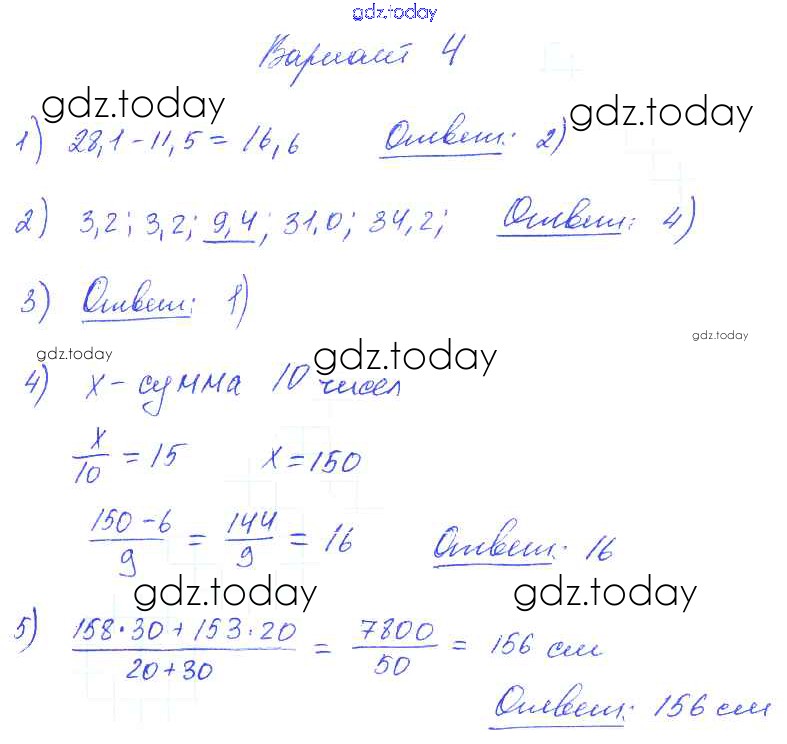 gdz.today
Вариант 4
gdz.today gdz.today
1) 28,1 - 11,5 = 16,6 Ответ: 2)
2) 3,2; 3,2; 9,4; 31,0; 34,2; Ответ: 4)
3) Ответ: 1)
gdz.today
gdz.today gdz.today
4) х - сумма 10 чисел
х/10 = 15 х = 150
150 - 6/9 = 144/9 = 16 Ответ: 16
gdz.today gdz.today
5) 158·30 + 153·20/20 + 30 = 7800/50 = 156 см
Ответ: 156 см